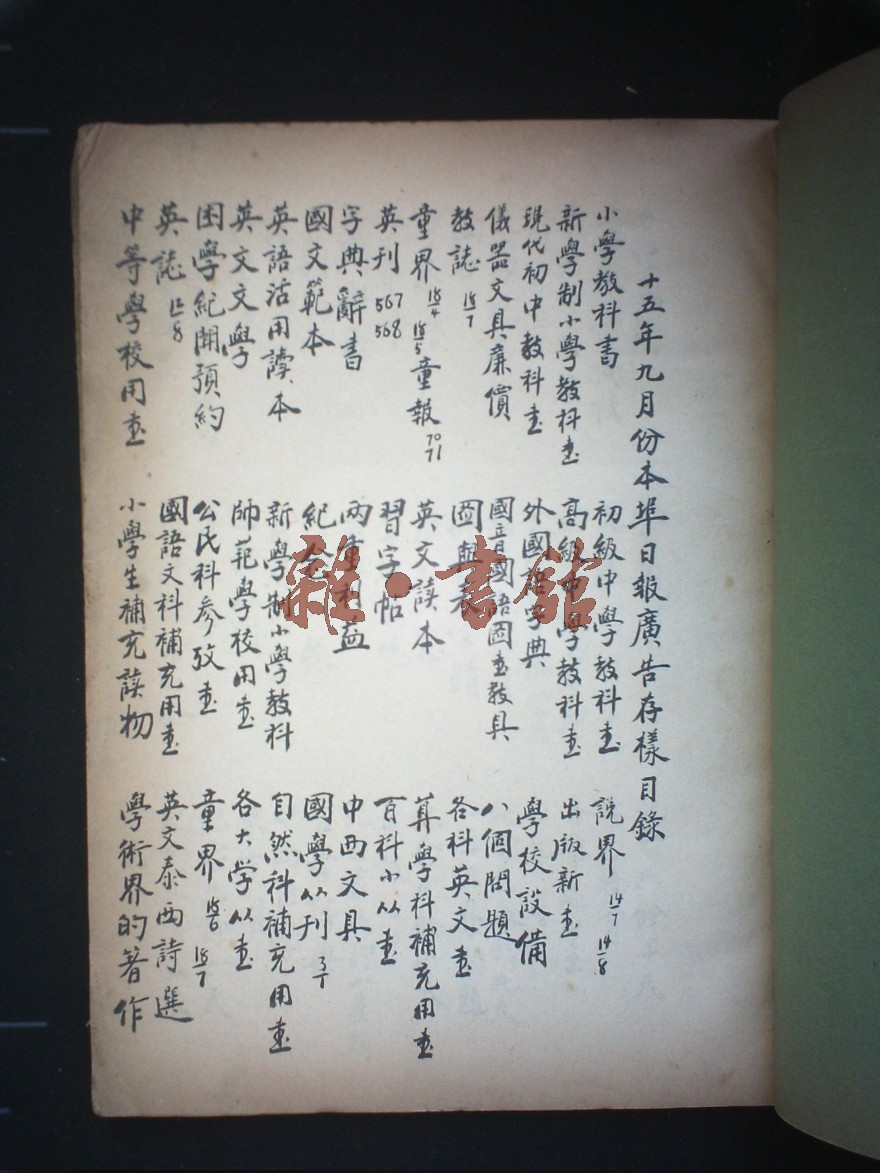 十五年九月份本埠日報廣告存樣目錄
小學教科書
新學制小學教科書
現代初中教科書
儀器文具廉價
教誌 18/7
童界 15/4 15/5 童報 70 71
英刊 567 568
字典辭書
國文範本
英語活用讀本
英文文學
困學紀聞預約
英誌 12/8
中等學校用書
初級中學教科書
高級中學教科書
外國語字典
國音國語圖書教具
圖與表
英文讀本
習字帖
兩重利益
紀念
新學制小學教科
師範學校用書
公民科參攷書
國語文科補充用書
小學生補充讀物
說界 14/7 14/8
出版新書
學校設備
八個問題
各科英文書
算學科補充用書
百科小从書
中西文具
國學从刊 3/1
自然科補充用書
各大学从書
童界 15/6 15/7
英文泰西詩選
學術界的著作
雜·書館